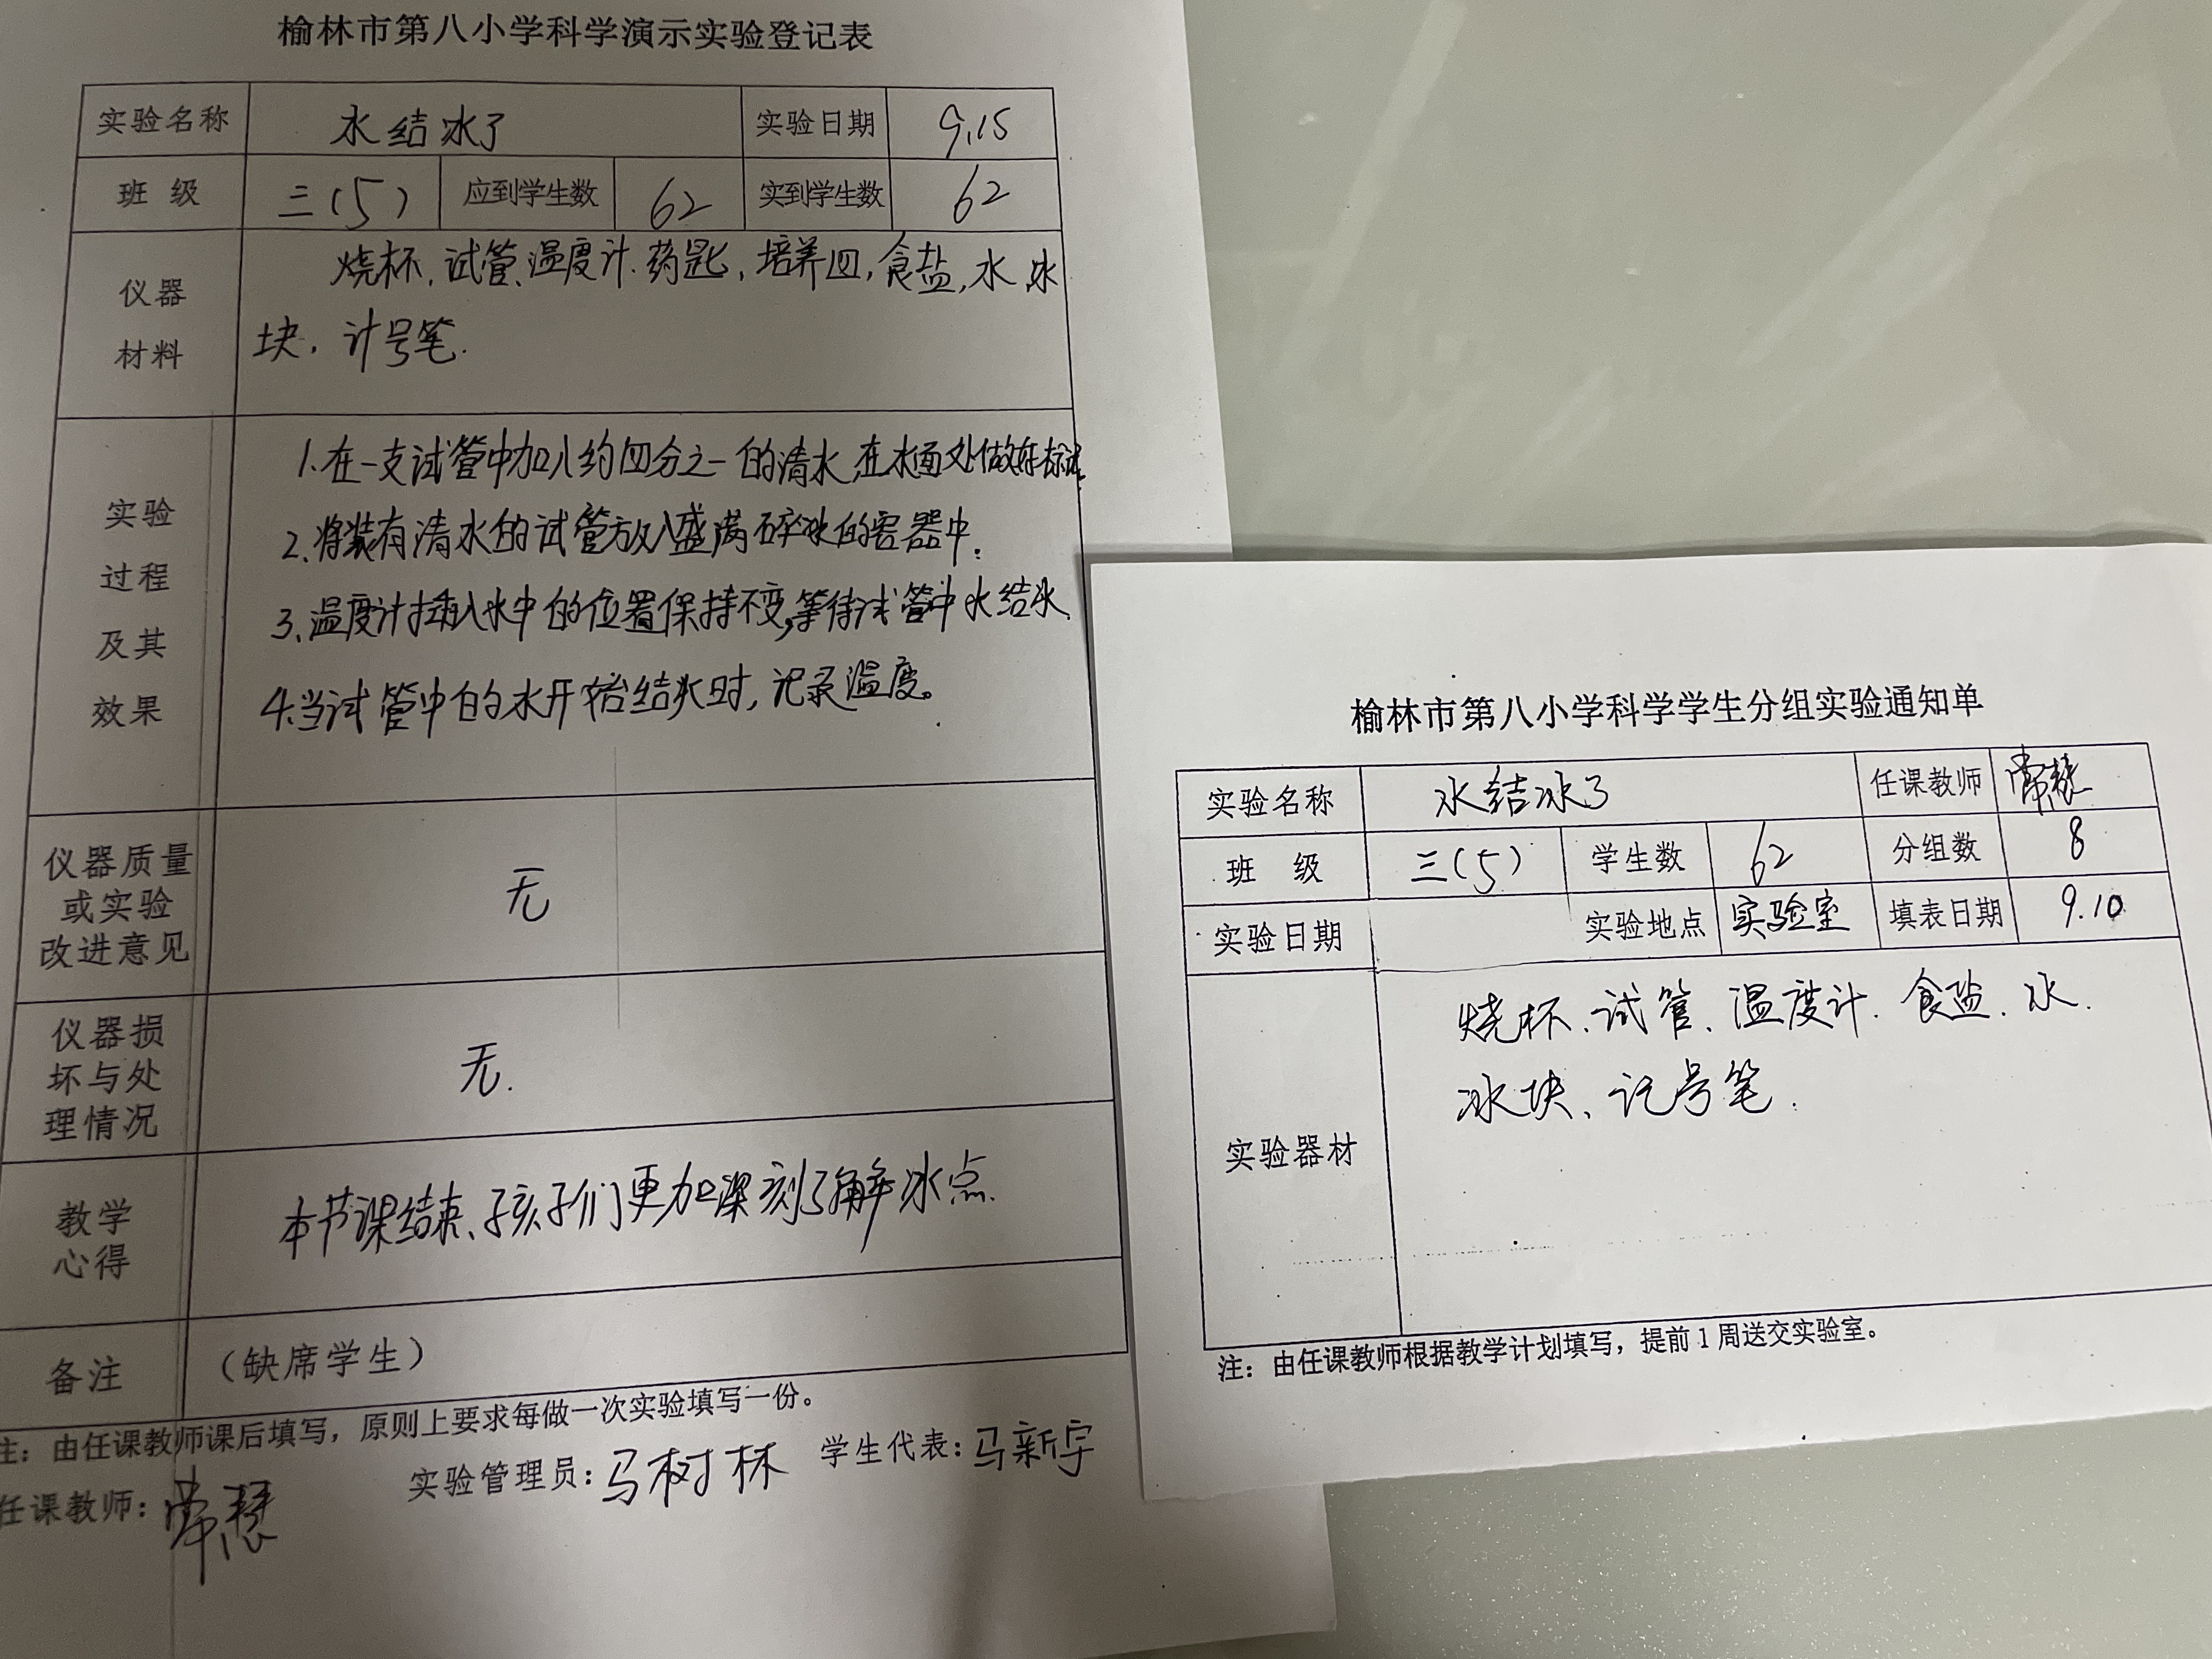 榆林市第八小学科学演示实验登记表
实验名称 水结冰了 实验日期 9.15
班 级 三(5) 应到学生数 62 实到学生数 62
仪器
材料
烧杯、试管、温度计、药匙、培养皿,食盐,水,冰
块、计号笔.
实验
过程
及其
效果
1.在一支试管中加入约四分之一的清水,在水面处做好标记.
2.将装有清水的试管放入盛满碎冰的容器中.
3.温度计插入水中的位置保持不变,等待试管中水结冰.
4.当试管中的水开始结冰时,记录温度。
仪器质量
或实验
改进意见
无
仪器损
坏与处
理情况
无.
教学
心得
本节课结束、孩子们更加深刻了解冰点.
备注 (缺席学生)
注:由任课教师课后填写,原则上要求每做一次实验填写一份。
任课教师:常慧 实验管理员:马树林 学生代表:马新宇
榆林市第八小学科学学生分组实验通知单
实验名称 水结冰了 任课教师 常慧
班 级 三(5) 学生数 62 分组数 8
实验日期 实验地点 实验室 填表日期 9.10
实验器材
烧杯、试管、温度计、食盐、水.
冰块、记号笔.
注:由任课教师根据教学计划填写,提前1周送交实验室。